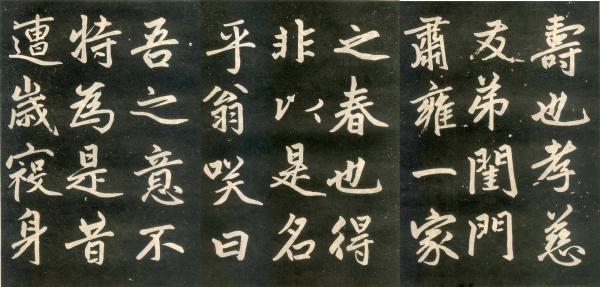 壽也孝慈
友弟閨門
肅雍一家
之春也得
非以是名
乎翁咲曰
吾之意不
特為是昔
遭歲寑身